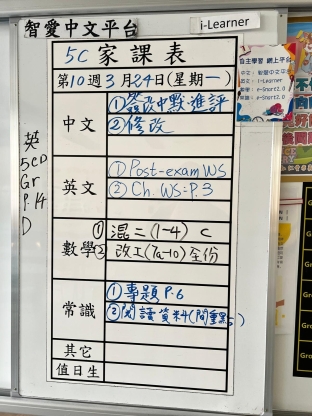 智愛中文平台
i-Learner
5C 家課表
第10週3月24日(星期一)
中文
①簽改中默進評
②修改
英文
① Post-exam WS
② Ch. WS: P.3
數學
① 混二(1-4) C
② 改工(7a-10)全份
常識
①專題 P.6
②閱讀資料(間重點)
其它
值日生
英
5CD
Gr
P.14
D
自主學習 網上平台
中文：智愛中文平台
英文：i-Learner